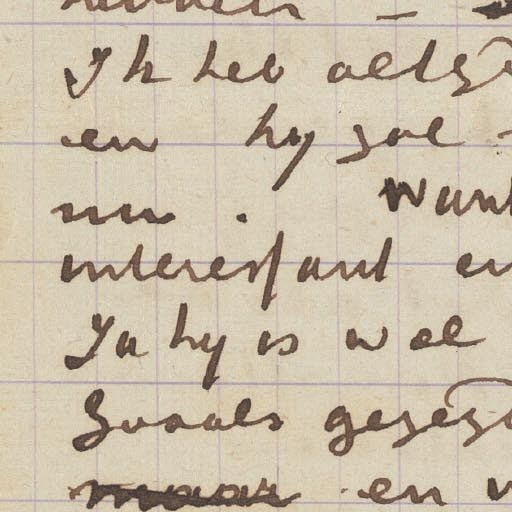 hebben –
Ik heb alty
en hy zal
nu . Want
interessant en
Ja hy is wel
Zooals gezeg
maar en